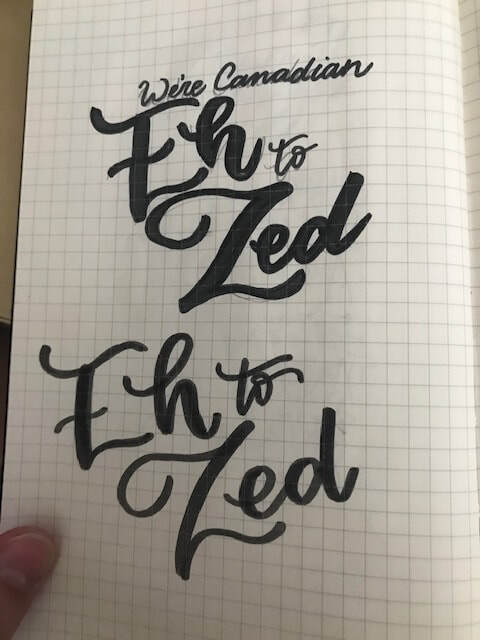 We're Canadian
Eh to
Zed
Eh to
Zed